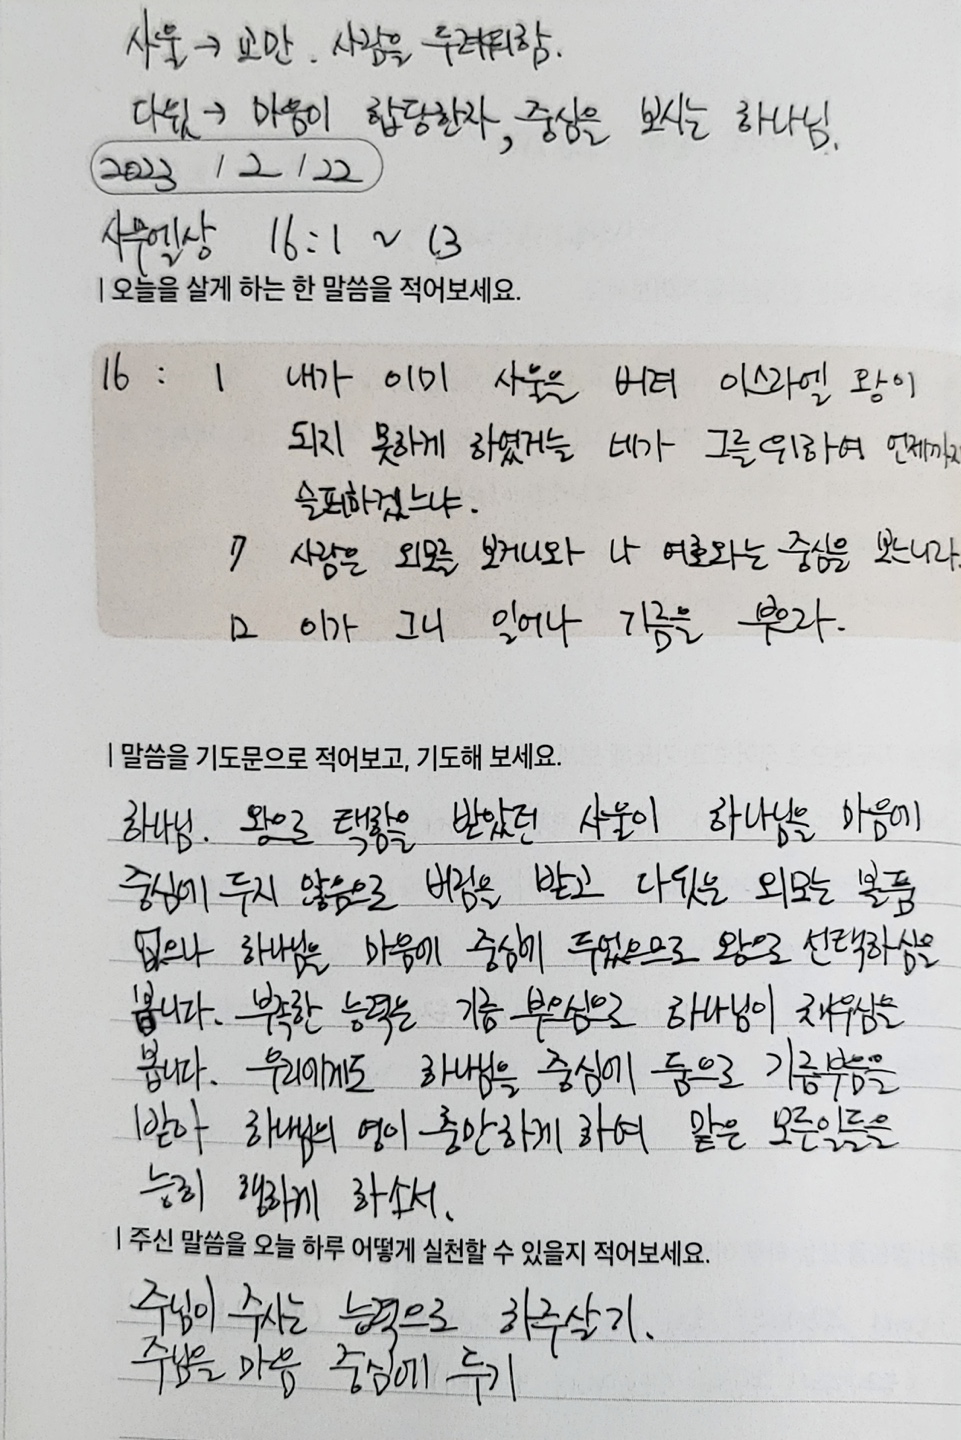 사울 → 교만. 사람을 두려워함.
다윗 → 마음이 합당한자, 중심을 보시는 하나님.
2023 / 2 / 22
사무엘상 16:1 ~ 13
| 오늘을 살게 하는 한 말씀을 적어보세요.
16 : 1 내가 이미 사울을 버려 이스라엘 왕이
되지 못하게 하였거늘 네가 그를 위하여 언제까지
슬퍼하겠느냐.
7 사람은 외모를 보거니와 나 여호와는 중심을 보느니라.
12 이가 그니 일어나 기름을 부으라.
| 말씀을 기도문으로 적어보고, 기도해 보세요.
하나님. 왕으로 택함을 받았던 사울이 하나님을 마음에
중심에 두지 않음으로 버림을 받고 다윗은 외모는 볼품
없으나 하나님을 마음에 중심에 두었으므로 왕으로 선택하심을
봅니다. 부족한 능력는 기름 부으심으로 하나님이 채우심을
봅니다. 우리에게도 하나님을 중심에 둠으로 기름부음을
받아 하나님의 영이 충만하게 하여 맡은 모든일들을
능히 행하게 하소서.
| 주신 말씀을 오늘 하루 어떻게 실천할 수 있을지 적어보세요.
주님이 주시는 능력으로 하루살기.
주님을 마음 중심에 두기